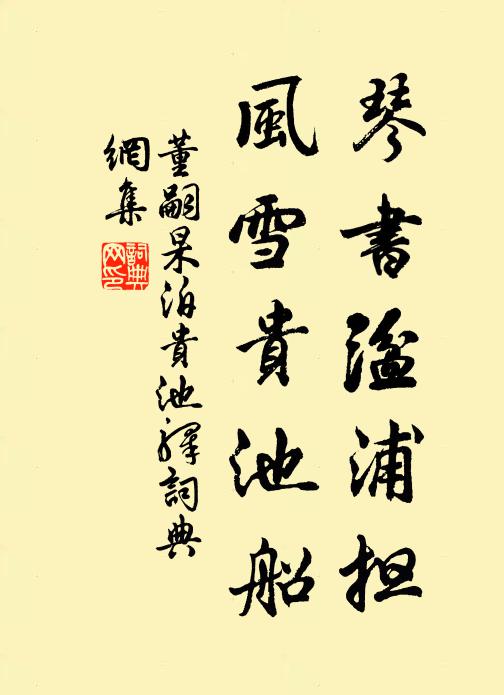 琴書湓浦担
風雪貴池船
董嗣杲泊貴池釋詞典
網集
詞典
网印